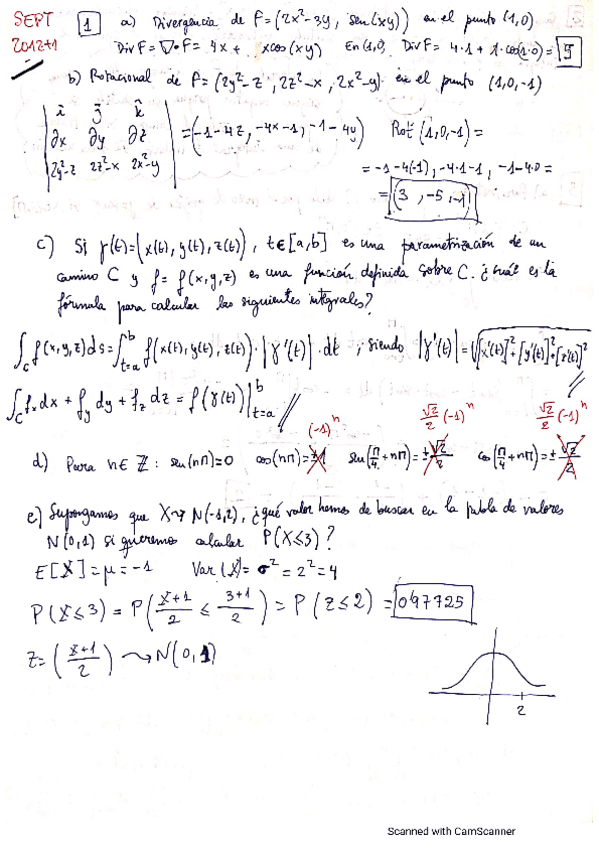 SEPT 2012+1
1 a) Divergencia de F=(2x²-3y, sen(xy)) en el punto (1,0)
Div F = ∇•F = 4x + xcos(xy) En (1,0, Div F = 4·1 + 1·cos(1·0) = 5
b) Rotacional de F=(2y²-z, 2z²-x, 2x²-y) en el punto (1,0,-1)
| i j k |
| ∂x ∂y ∂z | = (-1-4z, -4x-1, -1-4y) Rot(1,0,-1) =
| 2y²-z 2z²-x 2x²-y |
= -1-4(-1), -4·1-1, -1-4·0 =
= (3, -5, -1)
c) Si γ(t)=(x(t), y(t), z(t)), t∈[a,b] es una parametrización de un
camino C y f= f(x,y,z) es una función definida sobre C. ¿cuál es la
fórmula para calcular las siguientes integrales?
∫_C f(x,y,z)ds = ∫_{t=a}^b f(x(t), y(t), z(t))·|γ'(t)|·dt, siendo |γ'(t)| = √[x'(t)]²+[y'(t)]²+[z'(t)]²
∫_C f_x dx + f_y dy + f_z dz = f(γ(t))|_{t=a}^b
(-1)^n √2/2 (-1)^n √2/2 (-1)^n
d) Para n∈ℤ: sen(nπ)=0 cos(nπ)=±1 sen(π/4+nπ)=±√2/2 cos(π/4+nπ)=±√2/2
e) Supongamos que X↝N(-1,2), ¿qué valor hemos de buscar en la tabla de valores
N(0,1) si queremos calcular P(X≤3)?
E[X]=μ=-1 Var(X)=σ²=2²=4
P(X≤3) = P(x+1/2 ≤ 3+1/2) = P(z≤2) = 0'97725
z=(x+1/2) ↝ N(0,1)
2
Scanned with CamScanner